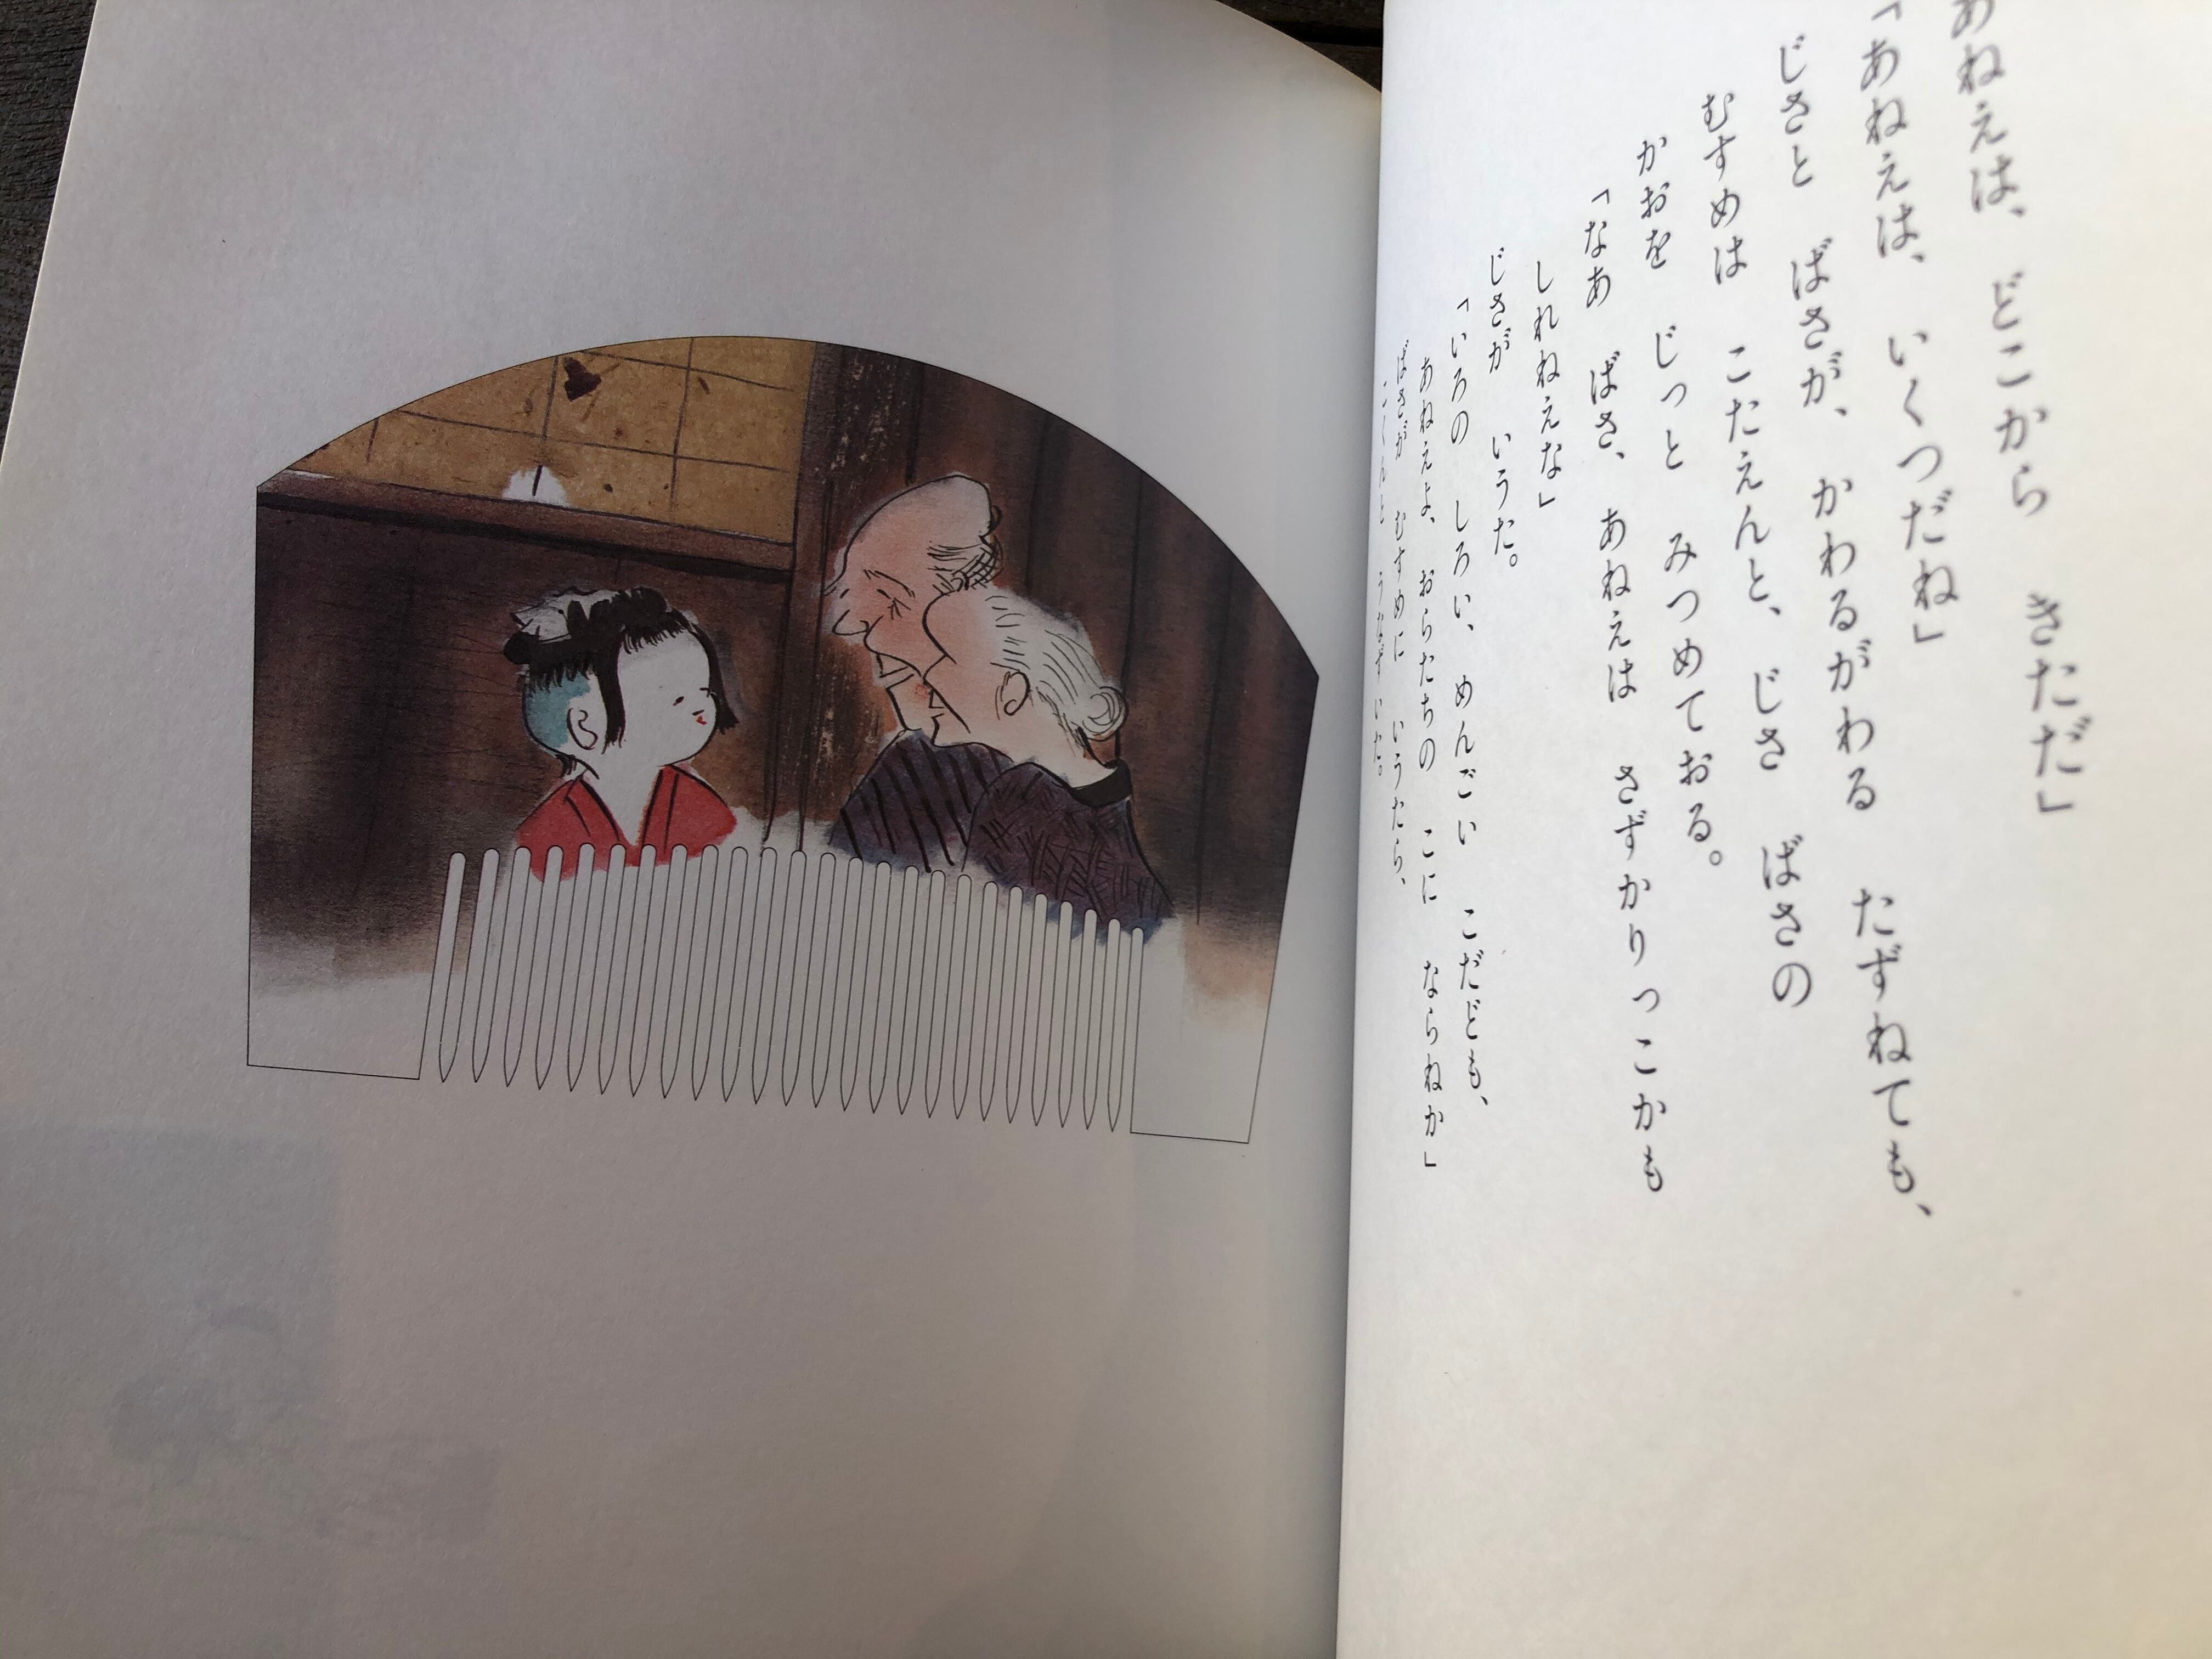 あねえは、 どこから きただ」
「あねえは、 いくつだね」
じさと ばさが、 かわるがわる たずねても、
むすめは こたえんと、 じさ ばさの
かおを じっと みつめておる。
「なあ ばさ、 あねえは さずかりっこかも
しれねえな」
じさが いうた。
「いろの しろい、 めんごい こだども、
あねえよ、 おらたちの こに ならねか」
ばさが むすめに いうたら、
こくんと うなずいた。